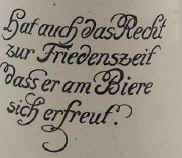 Hat auch das Recht
zur Friedenszeit
dass er am Biere
sich erfreut?